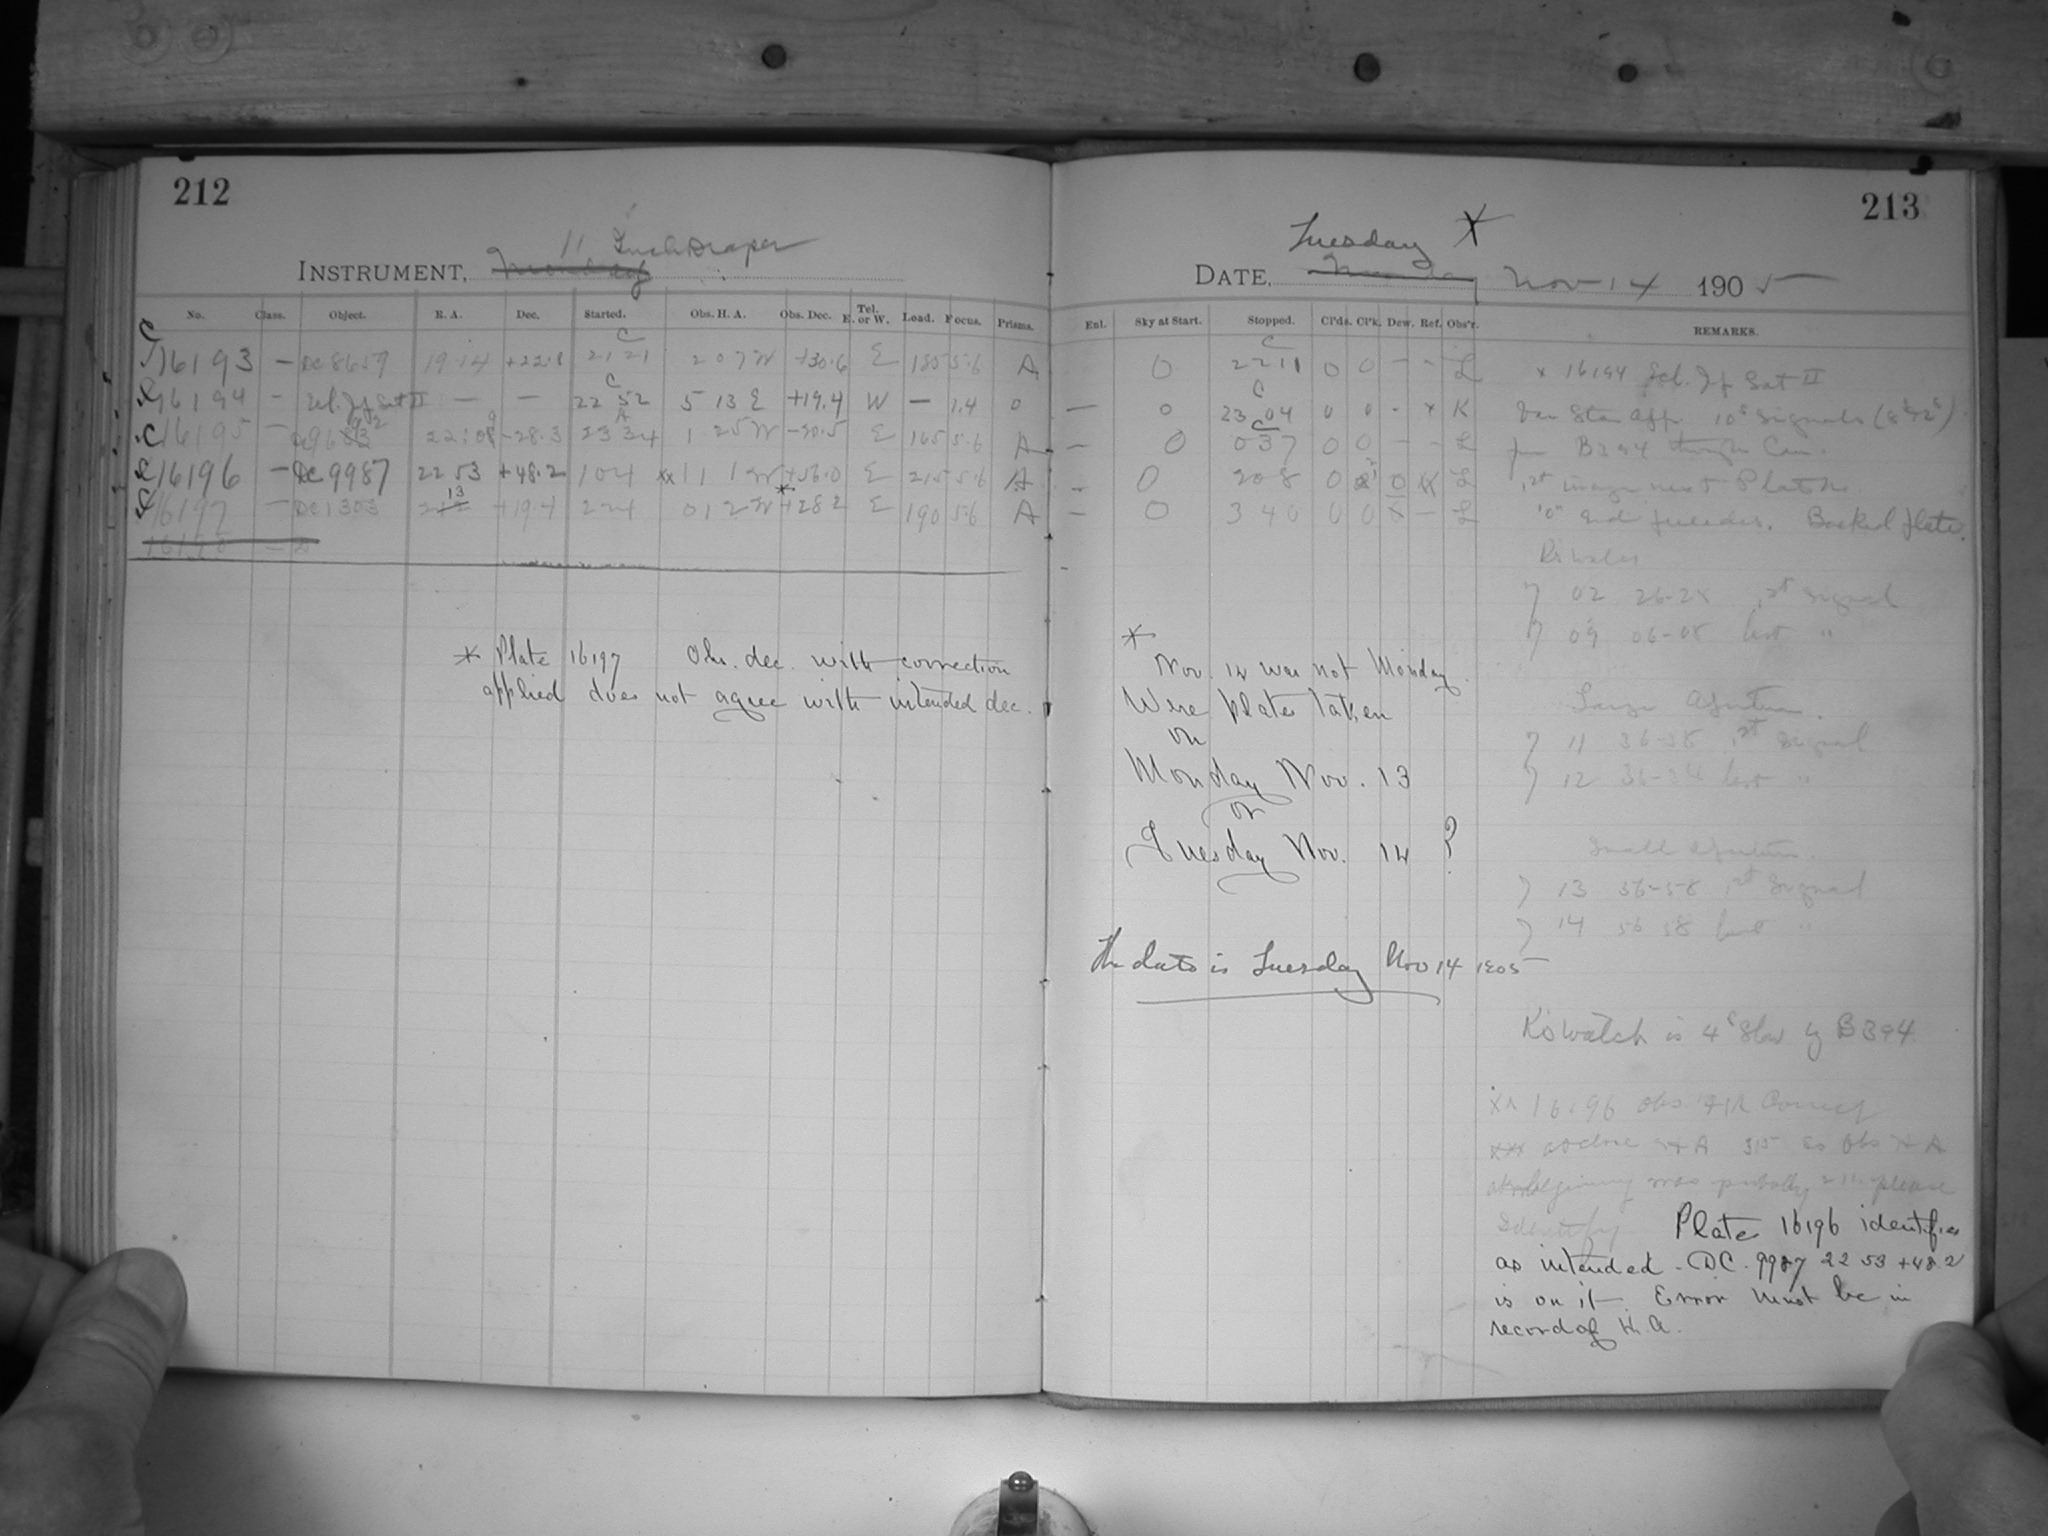 212
11 Inch Draper
INSTRUMENT, Monday
No. Class. Object. R. A. Dec. Started. Obs. H. A. Obs. Dec. Tel. E. or W. Load. Focus. Prisms.
C 16193 — DC 8659 19 14 +22.8 C 21 21 2 07 W +30.6 E 185 5.6 A
16194 — Ecl. Jf Sat II — — C 22 52 5 13 E +19.4 W — 1.4 0
C 16195 — -28.3 A 23 34 1 25 W E 165 5.6 A
16196 — DC 9987 22 53 +48.2 1 04 xx 11 1 W +56.0 E 215 5.6 A
16197 — DC 1303 13 +19.4 2 24 0 12 W * +28 2 E 190 5.6 A
* Plate 16197 Obs. dec. with correction
applied does not agree with intended dec.
213
Tuesday *
DATE, Monday Nov 14 1905
Enl. Sky at Start. Stopped. Cl'ds. Cl'k. Dew. Ref. Obs'r. REMARKS.
0 C 22 11 0 0 - - L x 16194 Ecl. Jf Sat II
— 0 C 23 04 0 0 - x K 10s Signals
— 0 C 0 37 0 0 - - L B394 through Cam.
- 0 2 08 0 0 L 1st image next
— 0 3 40 0 0 x - L "0" End precedes. Backed plate.
7 02 26-28 1st Signal
7 09 06-08 last "
Large Aperture.
7 11 36-38 1st Signal
7 12 36-38 last "
Small Aperture.
7 13 56-58 1st Signal
7 14 56 58 last "
*
Nov. 14 was not Monday.
Were plates taken
on
Monday Nov. 13
or
Tuesday Nov. 14 ?
The date is Tuesday Nov 14 1905
K's watch is 4s slow by B394
xx 16196 Obs HA Correct
xxx at close HA 315 so Obs HA
at beginning was probably 211 please
Identify Plate 16196 identifies
as intended - DC. 9987 22 53 +48.2
is on it. Error must be in
record of H. A.